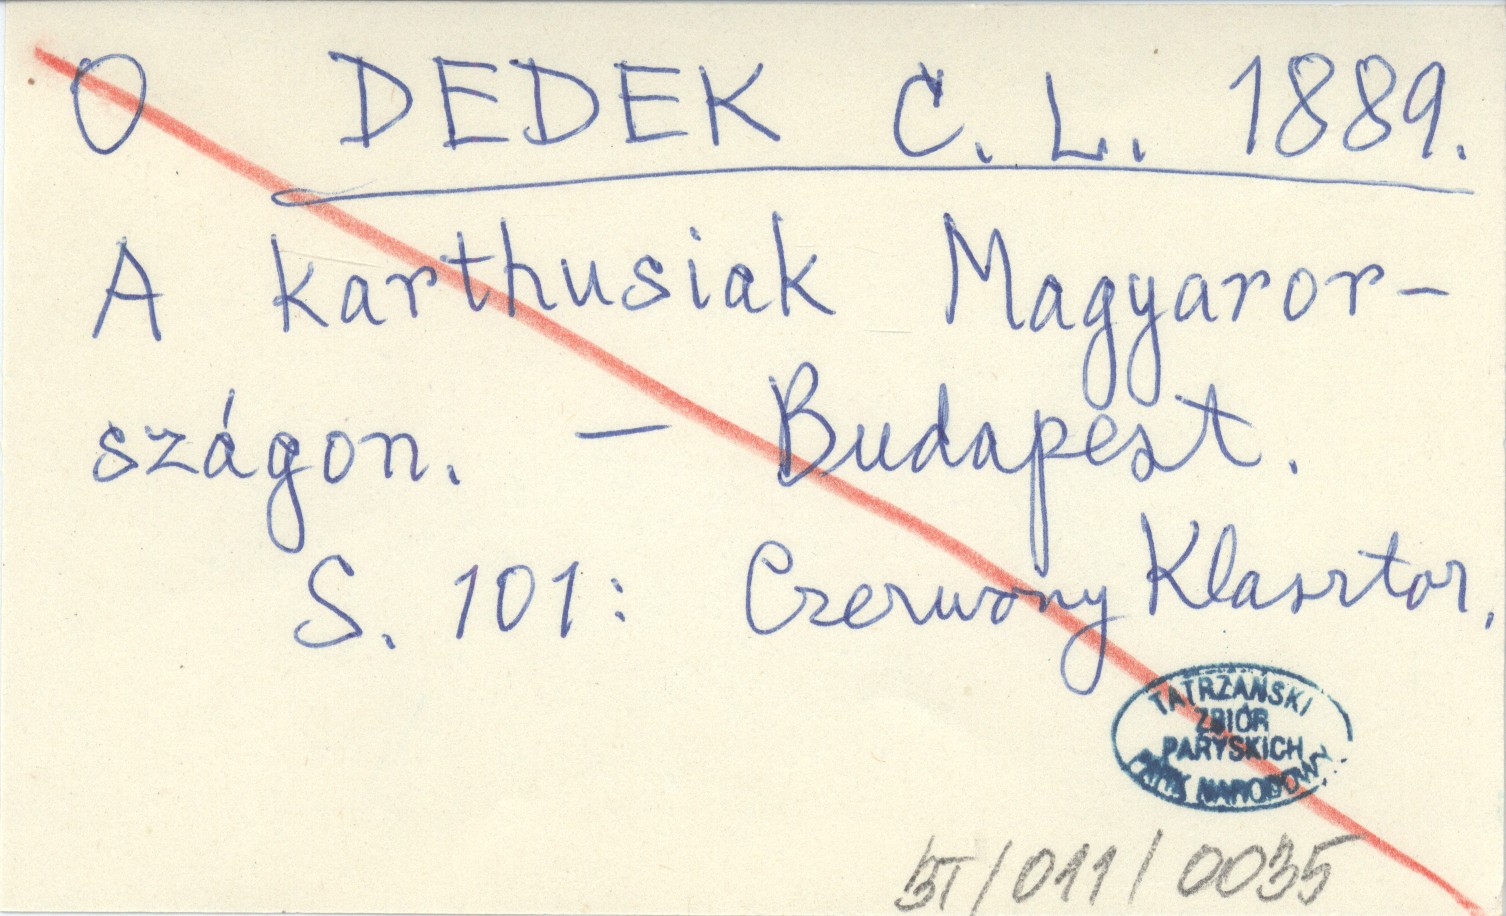 O DEDEK C. L. 1889.
A karthusiak Magyaror-
szágon. — Budapest.
S. 101: Czerwony Klasztor.
TATRZAŃSKI
ZBIÓR
PARYSKICH
PARK NARODOWY
/011/0035